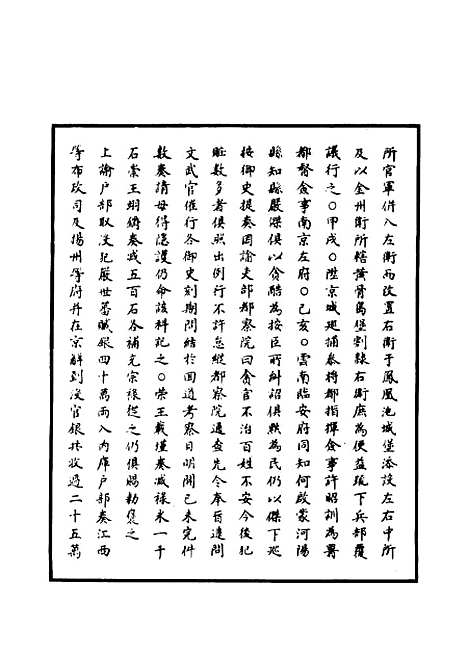 所官軍併入左衛而改置右衛于鳳凰池城堡添設左右中所
及以金州衛所轄黃骨島堡割隸右衛庶為便益疏下兵部覆
議行之○甲戌○陞京城巡捕參將都指揮僉事許昭訓為署
都督僉事南京左府○己亥○雲南臨安府同知何啟蒙河陽
縣知縣嚴傑俱以貪酷為按臣所糾詔俱黜為民仍以傑下巡
按御史提奏因諭吏部都察院曰貪官不治百姓不安今後犯
贓數多者俱照出例行不許怠縱都察院通查先今奉旨逮問
文武官催行各御史刻期問結於回道考察日明開已未完件
數奏請毋得隱護仍命該科記之○榮王載墐奏減祿米一千
石崇王翊𨰥奏減五百石各補充宗祿從之仍俱賜勅獎之
上諭戶部取沒犯嚴世蕃贓銀四十萬兩入內庫戶部奏江西
等布政司及揚州等府并在京解到沒官銀共收過二十五萬